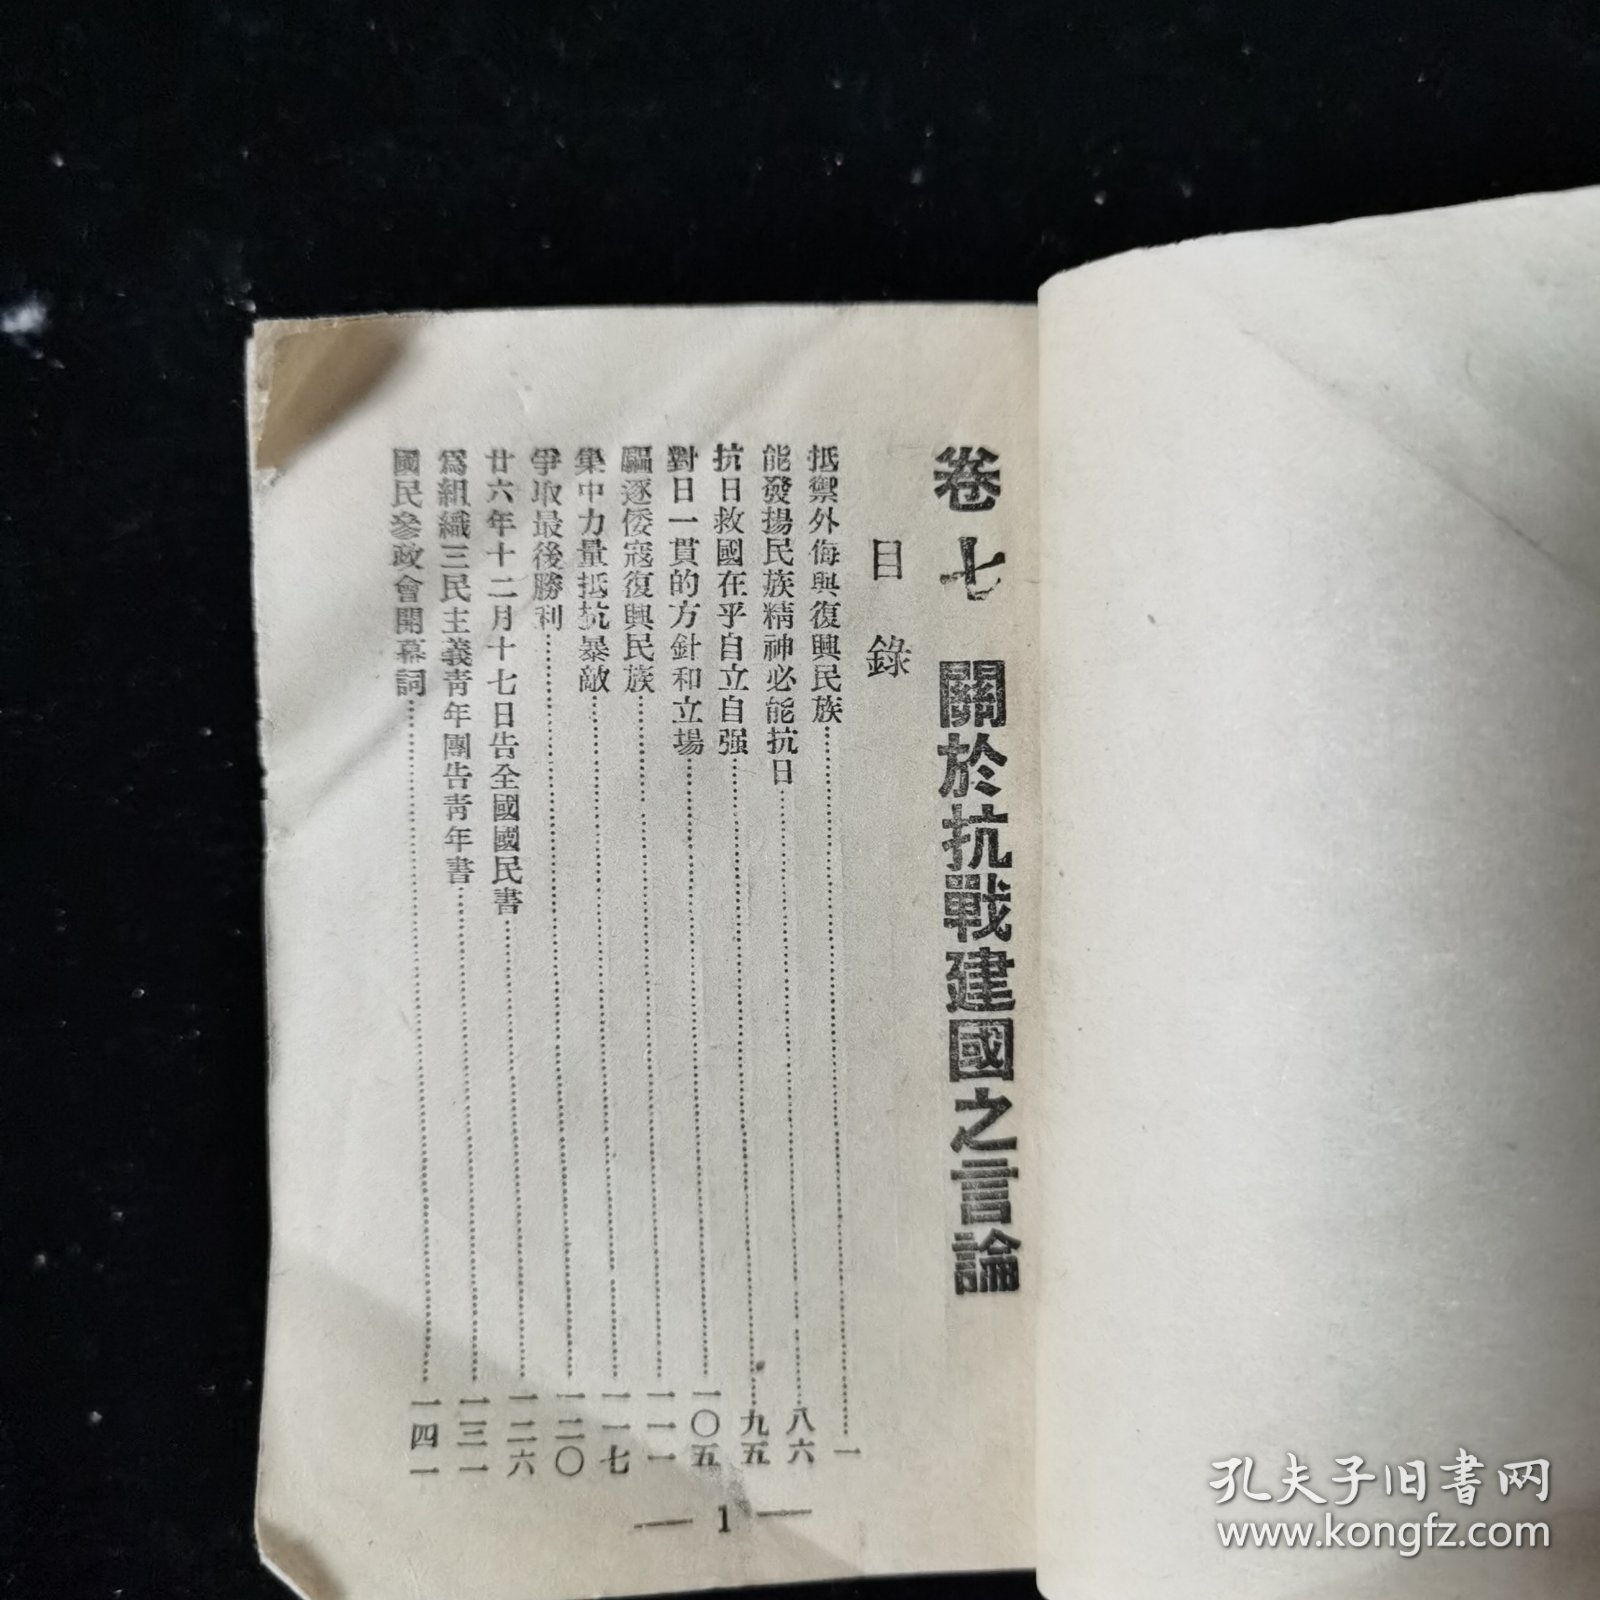 卷七　關於抗戰建國之言論
目錄
抵禦外侮與復興民族…………一
能發揚民族精神必能抗日…………八六
抗日救國在乎自立自强…………九五
對日一貫的方針和立場…………一〇五
驅逐倭寇復興民族…………一一一
集中力量抵抗暴敵…………一一七
爭取最後勝利…………一二〇
廿六年十二月十七日告全國國民書…………一二六
爲組織三民主義青年團告青年書…………一三一
國民參政會開幕詞…………一四一
— 1 —
孔夫子旧书网
www.kongfz.com